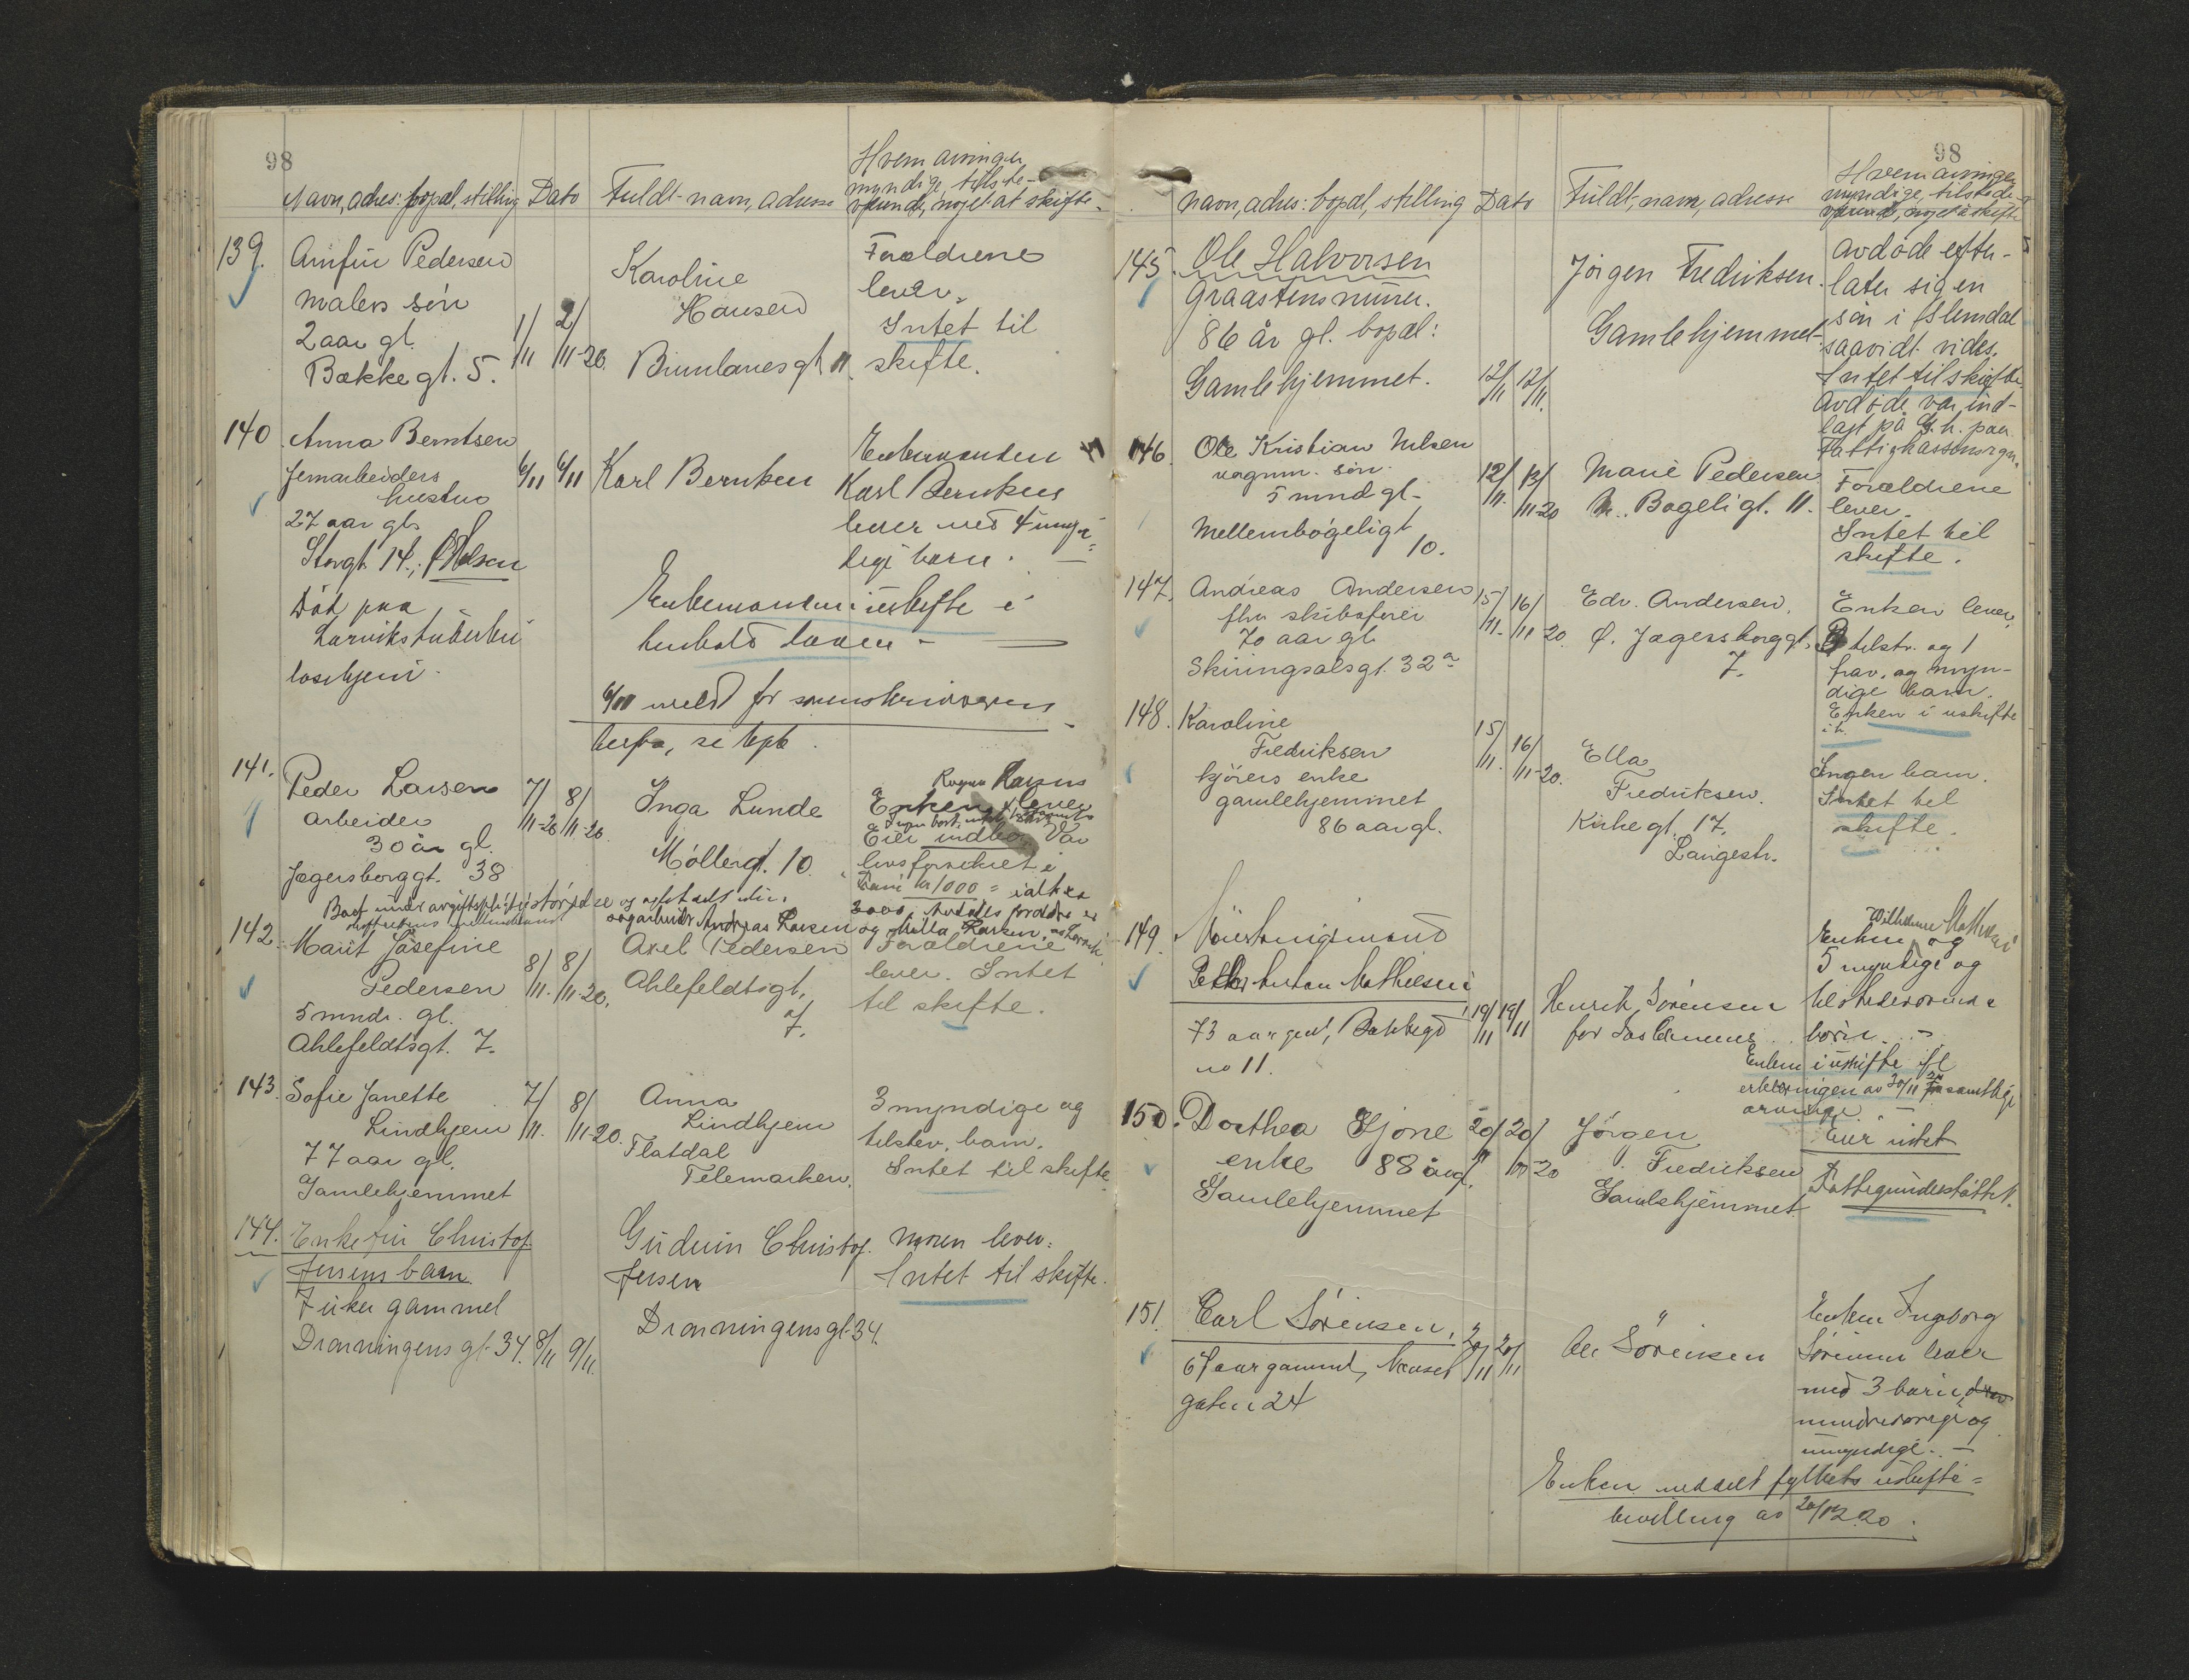 98
Navn, adres: bopæl, stilling Dato Fuldt-navn, adresse
Hvem arvingen
myndige, tilste-
værende, noget at skifte.
139. Arnfin Pedersen
malers søn
2 aar gl.
Bækkegt. 5.
1/11 2/11-20.
Karoline
Hansen
Brunlanesgt 11.
Forældrene
lever.
Intet til
skifte.
140. Anna Berntsen
Jernarbeiders
hustru
27 aar gl.
Storgt. 14,
Død paa
Larviks tuberku
losehjem.
6/11 6/11
Karl Berntsen
Enkemanden
Karl Berntsen
lever med 4 umyn
dige barn.
Enkemanden i uskifte i
henhold loven
6/11 meld for sorenskriveren
141. Peder Larsen
arbeider
30 år gl.
Jegersborggt. 38
7/11-20 8/11-20.
Inga Lunde
Møllergt. 10.
Ragna Larsen
Enken lever
Eier indbo. Var
livsforsikret i
kr 1000 = ialt kr
3000. Avdødes forældre er
Andreas Larsen og Milla Larsen,
142. Marit Josefine
Pedersen
5 mndr. gl.
Ahlefeldtsgt. 7.
8/11. 8/11-20.
Axel Pedersen
Ahlefeldtsgt.
7.
Forældrene
lever. Intet
til skifte.
143. Sofie Janette
Lindhjem
77 aar gl.
Gamlehjemmet
7/11. 8/11-20.
Anna
Lindhjem
Flatdal
Telemarken.
3 myndige og
tilstev. barn.
Intet til skifte
144. Enkefru Christof
Jensens barn
7 uker gammel
Dronningens gt. 34. 8/11 9/11.
Gudrun Christof.
Jensen
Dronningensgt. 34.
Moren lever.
Intet til skifte.
98
Navn, adres: bopæl, stilling Dato Fuldt, navn, adresse
Hvem arvingen
myndige, tilstede-
værende, noget å skifte
145. Ole Halvorsen
Graastensmurer.
86 år gl. bopæl:
Gamlehjemmet.
12/11 12/11.
Jørgen Fredriksen.
Gamlehjemmet.
Avdøde efter-
later sig en
søn i Slemdal
saavidt vides.
Intet til skifte.
Avdøde var ind-
lagt på G.h. paa
Fattigkassens regn.
146. Ole Kristian Nilsen
vognm. søn.
5 mnd gl.
Mellembøgeligt
10.
12/11. 13/11-20
Marie Pedersen
N. Bøgeligt. 11.
Forældrene
lever.
Intet til
skifte.
147. Andreas Andersen
fhv skibsfører
70 aar gl.
Skiringsalsgt. 32a
15/11. 16/11-20.
Edv. Andersen.
Ø. Jegersborggt.
7.
Enken lever,
tilstr. og 1
frav. og myn-
dige barn.
Enken i uskifte
i h.
148. Karoline
Fredriksen
kjørers enke
gamlehjemmet
86 aar gl.
15/11. 16/11-20.
Ella
Fredriksen.
Kirkegt. 17.
Langestr.
Ingen barn.
Intet til
skifte.
149.
Petter Anton Mathisen
73 aar gml, Bækkegt
no 11.
19/11 19/11
Henrik Sørensen
Wilhelmine Mathisen
Enken og
5 myndige og
tilstedeværende
børn.
Enken i uskifte ifl
erklæringen av 30/11 20 fra samtlige
arvinger.
150. Dorthea Gjone
enke 88 år gl.
Gamlehjemmet
20/11 20/11-20
Jørgen
Fredriksen
Gamlehjemmet.
Eier intet
Fattigunderstøttet.
151. Carl Sørensen,
67 aar gammel, Nansetgaten 24
20/11 20/11
Sørensen
Enken Ingeborg
Sørensen lever
med 3 børn
mindreårige og
umyndige.
Enken meddelt fylkets uskifte=
bevilling av 20/12 20.